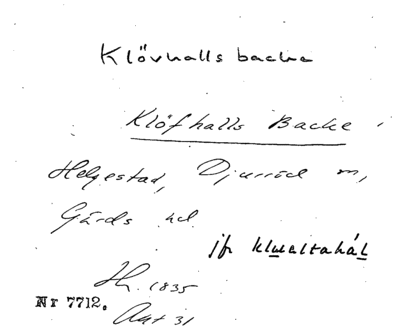 Klövhallsbacke
Klöfhalls Backe
Helgestad, Djurröd m,
Gärds hd.
jfr klweltahál
Lh. 1835
Nr 7712.
Akt 31